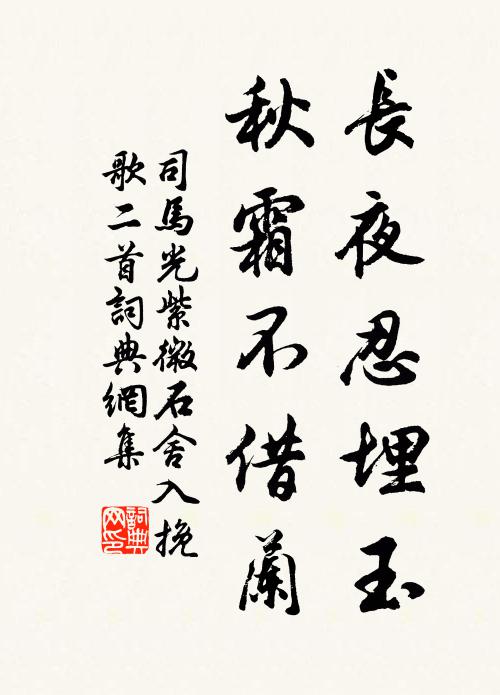 長夜忍埋玉
秋霜不借蘭
司馬光紫微石舍人挽
歌二首詞典網集
詞典
网印